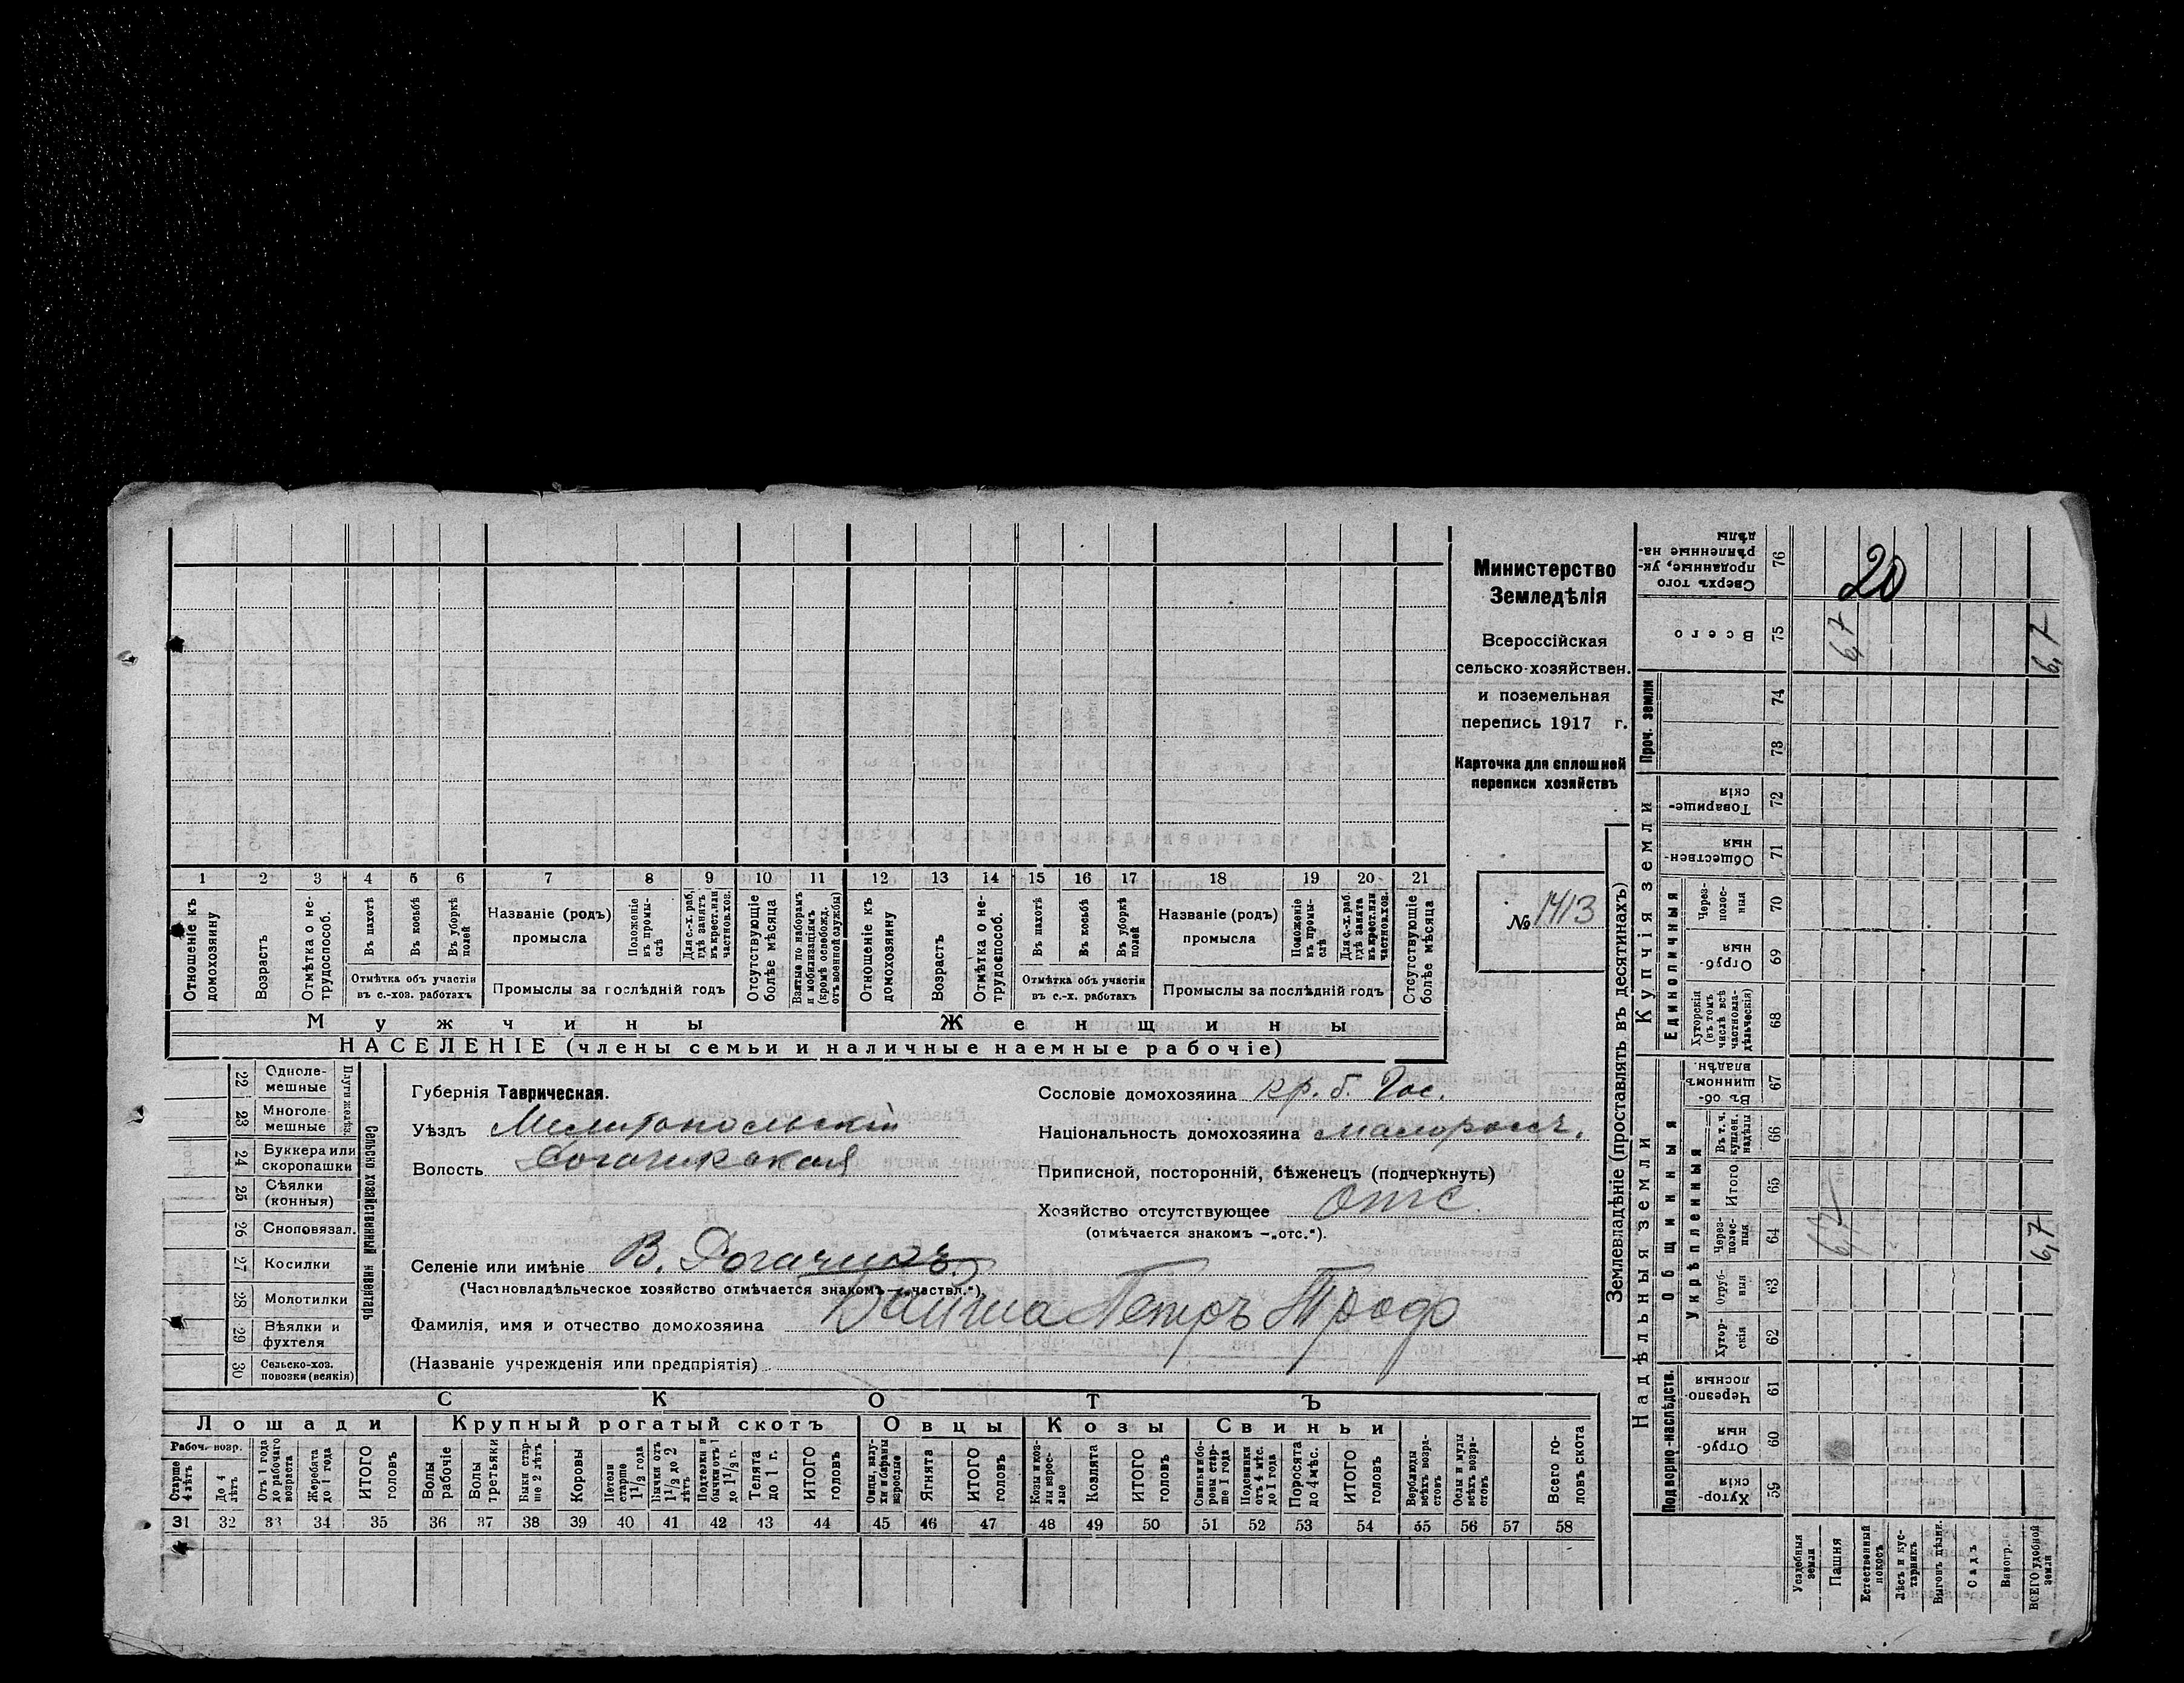 Министерство
Земледѣлія
Всероссійская
сельско-хозяйствен.
и поземельная
перепись 1917 г.
Карточка для сплошной
переписи хозяйствъ
№ 1413
1 2 3 4 5 6 7 8 9 10 11 12 13 14 15 16 17 18 19 20 21
Отношеніе къ домохозяину
Возрастъ
Отмѣтка о не-трудоспособ.
Въ пахотѣ
Въ косьбѣ
Въ уборкѣ полей
Отмѣтка объ участіи
въ с.-хоз. работахъ
Названіе (родъ)
промысла
Положеніе въ промы-слѣ
Для с.-х. раб. гдѣ занятъ въ крест. или частнов. хоз.
Промыслы за послѣдній годъ
Отсутствующіе болѣе мѣсяца
Взятые по наборамъ и мобилизаціямъ (кромѣ освобожд. отъ военной службы)
Отношеніе къ домохозяину
Возрастъ
Отмѣтка о не-трудоспособ.
Въ пахотѣ
Въ косьбѣ
Въ уборкѣ полей
Отмѣтка объ участіи
въ с.-х. работахъ
Названіе (родъ)
промысла
Положеніе въ промы-слѣ
Для с.-х. раб. гдѣ занята въ крест. или частнов. хоз.
Промыслы за послѣдній годъ
Отсутствующіе болѣе мѣсяца
Мужчины Женщины
НАСЕЛЕНІЕ (члены семьи и наличные наемные рабочіе)
Сельско хозяйственный инвентарь
Плуги желѣз.
22 Одноле-мешные
23 Многоле-мешные
24 Буккера или скоропашки
25 Сѣялки (конныя)
26 Сноповязал.
27 Косилки
28 Молотилки
29 Вѣялки и фухтеля
30 Сельско-хоз. повозки (всякія)
Губернія Таврическая.
Уѣздъ Мелитопольскій
Волость Рогачикская
Селеніе или имѣніе В. Рогачикъ
(Частновладѣльческое хозяйство отмѣчается знакомъ —„частвл.“)
Фамилія, имя и отчество домохозяина Петръ Троф
(Названіе учрежденія или предпріятія)
Сословіе домохозяина кр. б. Гос.
Національность домохозяина малоросс.
Приписной, посторонній, бѣженецъ (подчеркнуть)
Хозяйство отсутствующее отс.
(отмѣчается знакомъ —„отс.“).
СКОТЪ
Лошади Крупный рогатый скотъ Овцы Козы Свиньи
Рабоч. возр.
Старше 4 лѣтъ
До 4 лѣтъ
Отъ 1 года до рабочаго возраста
Жеребята до 1 года
ИТОГО головъ
Волы рабочіе
Волы третьяки
Быки стар-ше 2 лѣтъ
Коровы
Нетели старше 1½ года
Бычки отъ 1½ до 2 лѣтъ
Подтелки и бычки отъ 1 до 1½ г.
Телята до 1 г.
ИТОГО головъ
Овцы, валу-хи и бараны взрослые
Ягнята
ИТОГО головъ
Козы и коз-лы взрос-лые
Козлята
ИТОГО головъ
Свиньи и бо-ровы стар-ше 1 года
Подсвинки отъ 4 мѣс. до 1 года
Поросята до 4 мѣс.
ИТОГО головъ
Верблюды всѣхъ возра-стовъ
Ослы и мулы всѣхъ возра-стовъ
Всего го-ловъ скота
31 32 33 34 35 36 37 38 39 40 41 42 43 44 45 46 47 48 49 50 51 52 53 54 55 56 57 58
Землевладѣніе (проставлять въ десятинахъ)
Надѣльныя земли
Купчія земли
Проч. земли
Подворно-наслѣдств.
Общинныя
Укрѣпленныя
Единоличныя
Сверхъ того проданные, ук-рѣпленные на-дѣлы 76 20
Всего 75 6,7 6,7
74
73
Товарище-скія 72
Обществен-ныя 71
Через-полос-ныя 70
Отруб-ныя 69
Хуторскія (въ томъ числѣ всѣ частновла-дѣльческія) 68
Въ об-щинномъ владѣн. 67
Въ т. ч. куплен. надѣлы 66
Итого 65
Через-полос-ныя 64 6,7 6,7
Отруб-ныя 63
Хутор-скія 62
Черезпо-лосныя 61
Отруб-ныя 60
Хутор-скія 59
Усадебныя земли
Пашня
Естественный покосъ
Лѣсъ и кус-тарникъ
Выгонъ цѣлин.
Садъ
Виногр.
ВСЕГО удобной земли